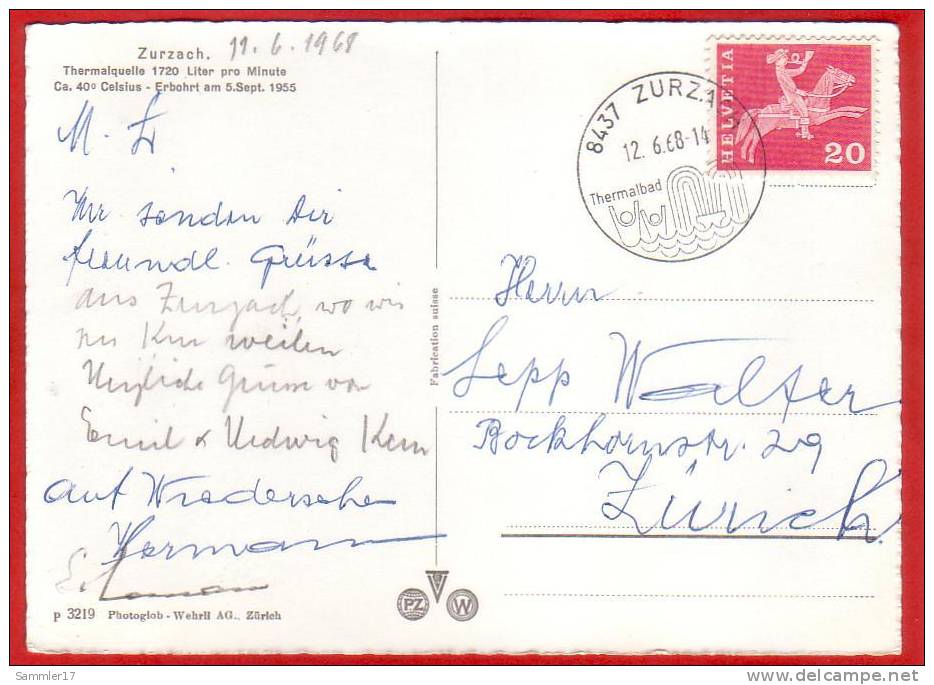 Zurzach. 11.6.1968
Thermalquelle 1720 Liter pro Minute
Ca. 40º Celsius - Erbohrt am 5.Sept. 1955
M. L
Wir senden Dir
freundl. Grüsse
aus Zurzach, wo wir
zur Kur weilen
Herzliche Grüsse von
Emil & Hedwig Kern
auf Wiedersehen
Hermann
p 3219 Photoglob - Wehrli AG., Zürich
Fabrication suisse
PZ
W
8437 ZURZA
12. 6.68-14
Thermalbad
HELVETIA
20
Herrn
Sepp Walter
Bockhornstr. 29
Zürich.
Sammler17
www.delcampe.net